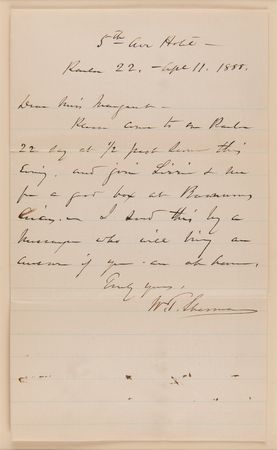 5th Ave Hotel -
Parlor 22. - Apl 11. 1888.
Dear Miss Margaret -
Please come to our Parlor
22 day at 1/2 past Seven this
Evng. and join Lizzie & me
for a good box at Barnum's
Circus. - I send this by a
Messenger who will bring an
answer if you are at home.
Truly yours,
W.T. Sherman